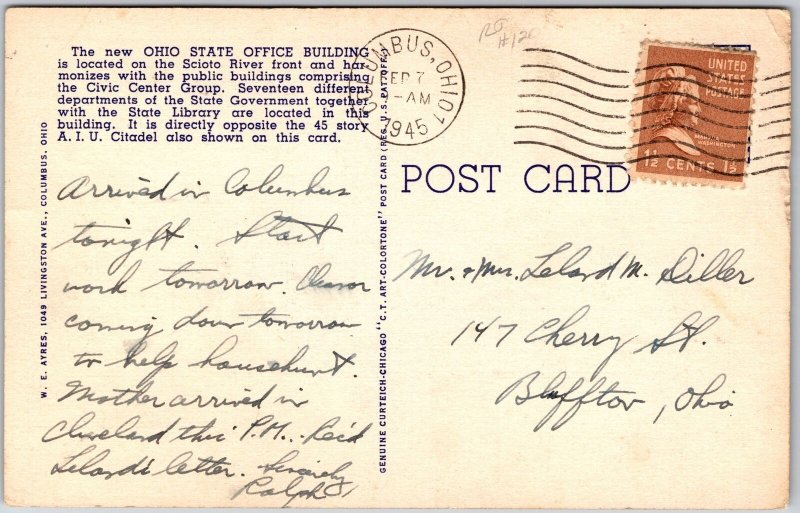 The new OHIO STATE OFFICE BUILDING
is located on the Scioto River front and har-
monizes with the public buildings comprising
the Civic Center Group. Seventeen different
departments of the State Government together
with the State Library are located in this
building. It is directly opposite the 45 story
A. I. U. Citadel also shown on this card.
W. E. AYRES, 1049 LIVINGSTON AVE., COLUMBUS, OHIO
Arrived in Columbus
tonight. Start
work tomorrow. Eleanor
coming down tomorrow
to help househunt.
Mother arrived in
Cleveland this P.M. Rec'd
Leland's letter. Sincerely
Ralph
GENUINE CURTEICH-CHICAGO "C.T. ART-COLORTONE" POST CARD (REG. U.S. PAT. OFF.)
COLUMBUS, OHIO 1
SEP 7
-AM
1945
#120
UNITED
STATES
POSTAGE
MARTHA
WASHINGTON
1½ CENTS 1½
POST CARD
Mr. & Mrs. Leland M. Diller
147 Cherry St.
Bluffton, Ohio